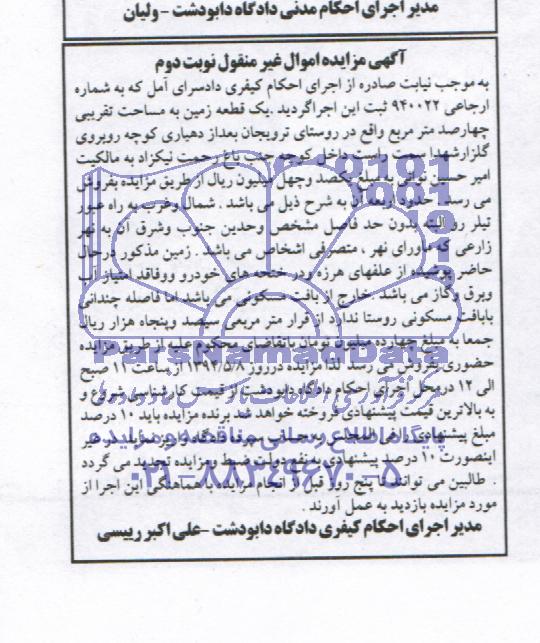 مدیر اجرای احکام مدنی دادگاه دابودشت - ولیان
آگهی مزایده اموال غیر منقول نوبت دوم
به موجب نیابت صادره از اجرای احکام کیفری دادسرای آمل که به شماره
ارجاعی ۹۴۰۰۲۲ ثبت این اجراگردید .یک قطعه زمین به مساحت تقریبی
چهارصد متر مربع واقع در روستای ترویجان بعداز دهیاری کوچه روبروی
گلزارشهدا سمت راست داخل کوچه جنب باغ رحمت نیکزاد به مالکیت
امیر حسین به مبلغ یکصد وچهل میلیون ریال از طریق مزایده بفروش
می رسد . حدود اربعه آن به شرح ذیل می باشد . شمال وغرب به راه عبور
تیلر رو البته بدون حد فاصل مشخص وحدین جنوب وشرق آن به نهر
زارعی که ماورای نهر ، متصرفی اشخاص می باشد . زمین مذکور درحال
حاضر پوشیده از علفهای هرزه ودر ختچه های خودرو ووفاقد امتیاز آب
وبرق وگاز می باشد .خارج از بافت مسکونی می باشد اما فاصله چندانی
بابافت مسکونی روستا ندارد از قرار متر مربعی سیصد وپنجاه هزار ریال
جمعا به مبلغ چهارده میلیون تومان باتقاضای محکوم علیه از طریق مزایده
حضوری بفروش می رسد. لذا مزایده درروز ۱۳۹۴/۵/۸ از ساعت ۱۱ صبح
الی ۱۲ درمحل اجرای احکام دادگاه دابودشت از قیمت کارشناسی شروع و
به بالاترین قیمت پیشنهادی فروخته خواهد شد برنده مزایده باید ۱۰ درصد
مبلغ پیشنهادی را فی المجلس به حساب سپرده دادگاه واریز نماید در غیر
اینصورت ۱۰ درصد پیشنهادی به نفع دولت ضبط ومزایده تجدید می گردد
. طالبین می توانند تا پنج روز قبل از انجام مزایده با هماهنگی این اجرا از
مورد مزایده بازدید به عمل آورند .
مدیر اجرای احکام کیفری دادگاه دابودشت -علی اکبر رییسی
ParsNamadData
پایگاه اطلاع رسانی مناقصه و مزایده
۰۲۱-۸۸۳۴۹۶۷۰-۵